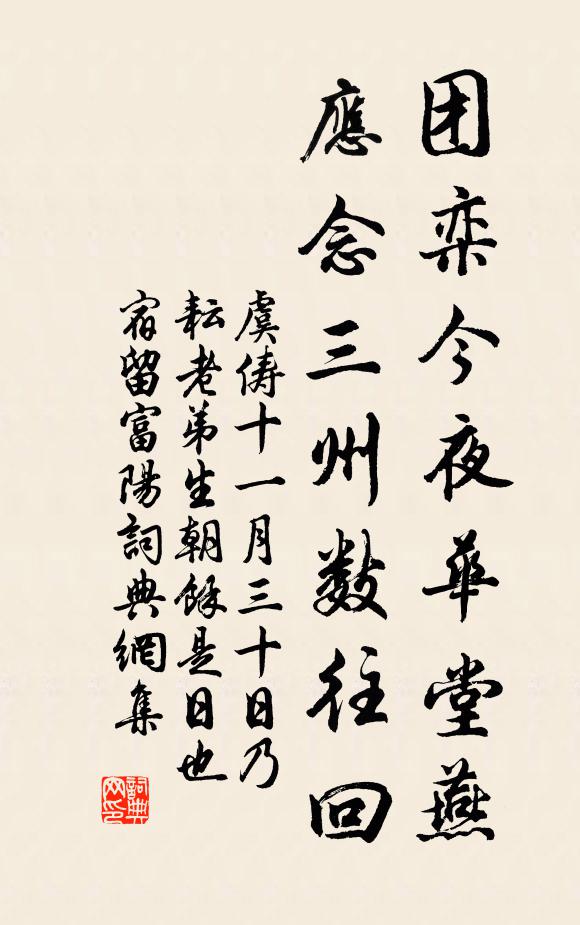 团栾今夜华堂燕
應念三州数往回
虞儔十一月三十日乃
耘老弟生朝餘是日也
宿留富陽詞典網集
詞典
网印